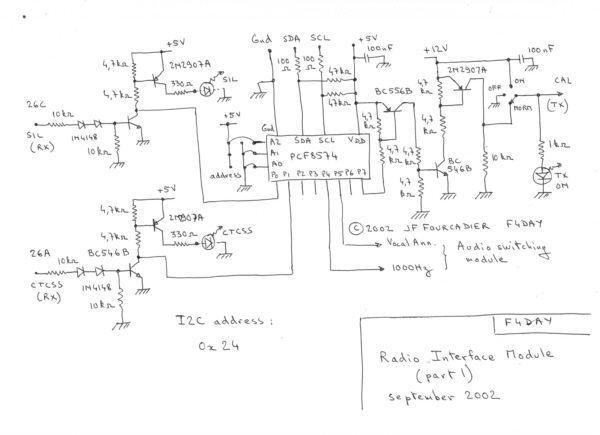 +5V
2N2907A
4,7kΩ
330Ω
SIL
4,7kΩ
26C
10kΩ
SIL
(RX)
1N4148
10kΩ
Gnd SDA SCL +5V
100 Ω
100 Ω
100nF
47kΩ
47kΩ
BC556B
+5V
address
Gnd
A2 SDA SCL VDD
A1 PCF8574
A0
P0 P1 P2 P3 P4 P5 P6 P7
4,7 kΩ
4,7 kΩ
4,7 kΩ
4,7 kΩ
+12V
2N2907A
4,7 kΩ
4,7 kΩ
BC 546B
100nF
ON
OFF
NORM
CAL
(TX)
10kΩ
1kΩ
TX
ON
+5V
2N2907A
4,7kΩ
330Ω
CTCSS
4,7kΩ
26A
10kΩ
BC546B
CTCSS
(RX)
1N4148
10kΩ
© 2002 JF FOURCADIER F4DAY
Vocal Ann.
1000Hz
Audio switching
module
I2C address :
0x24
F4DAY
Radio Interface Module
(part 1)
september 2002